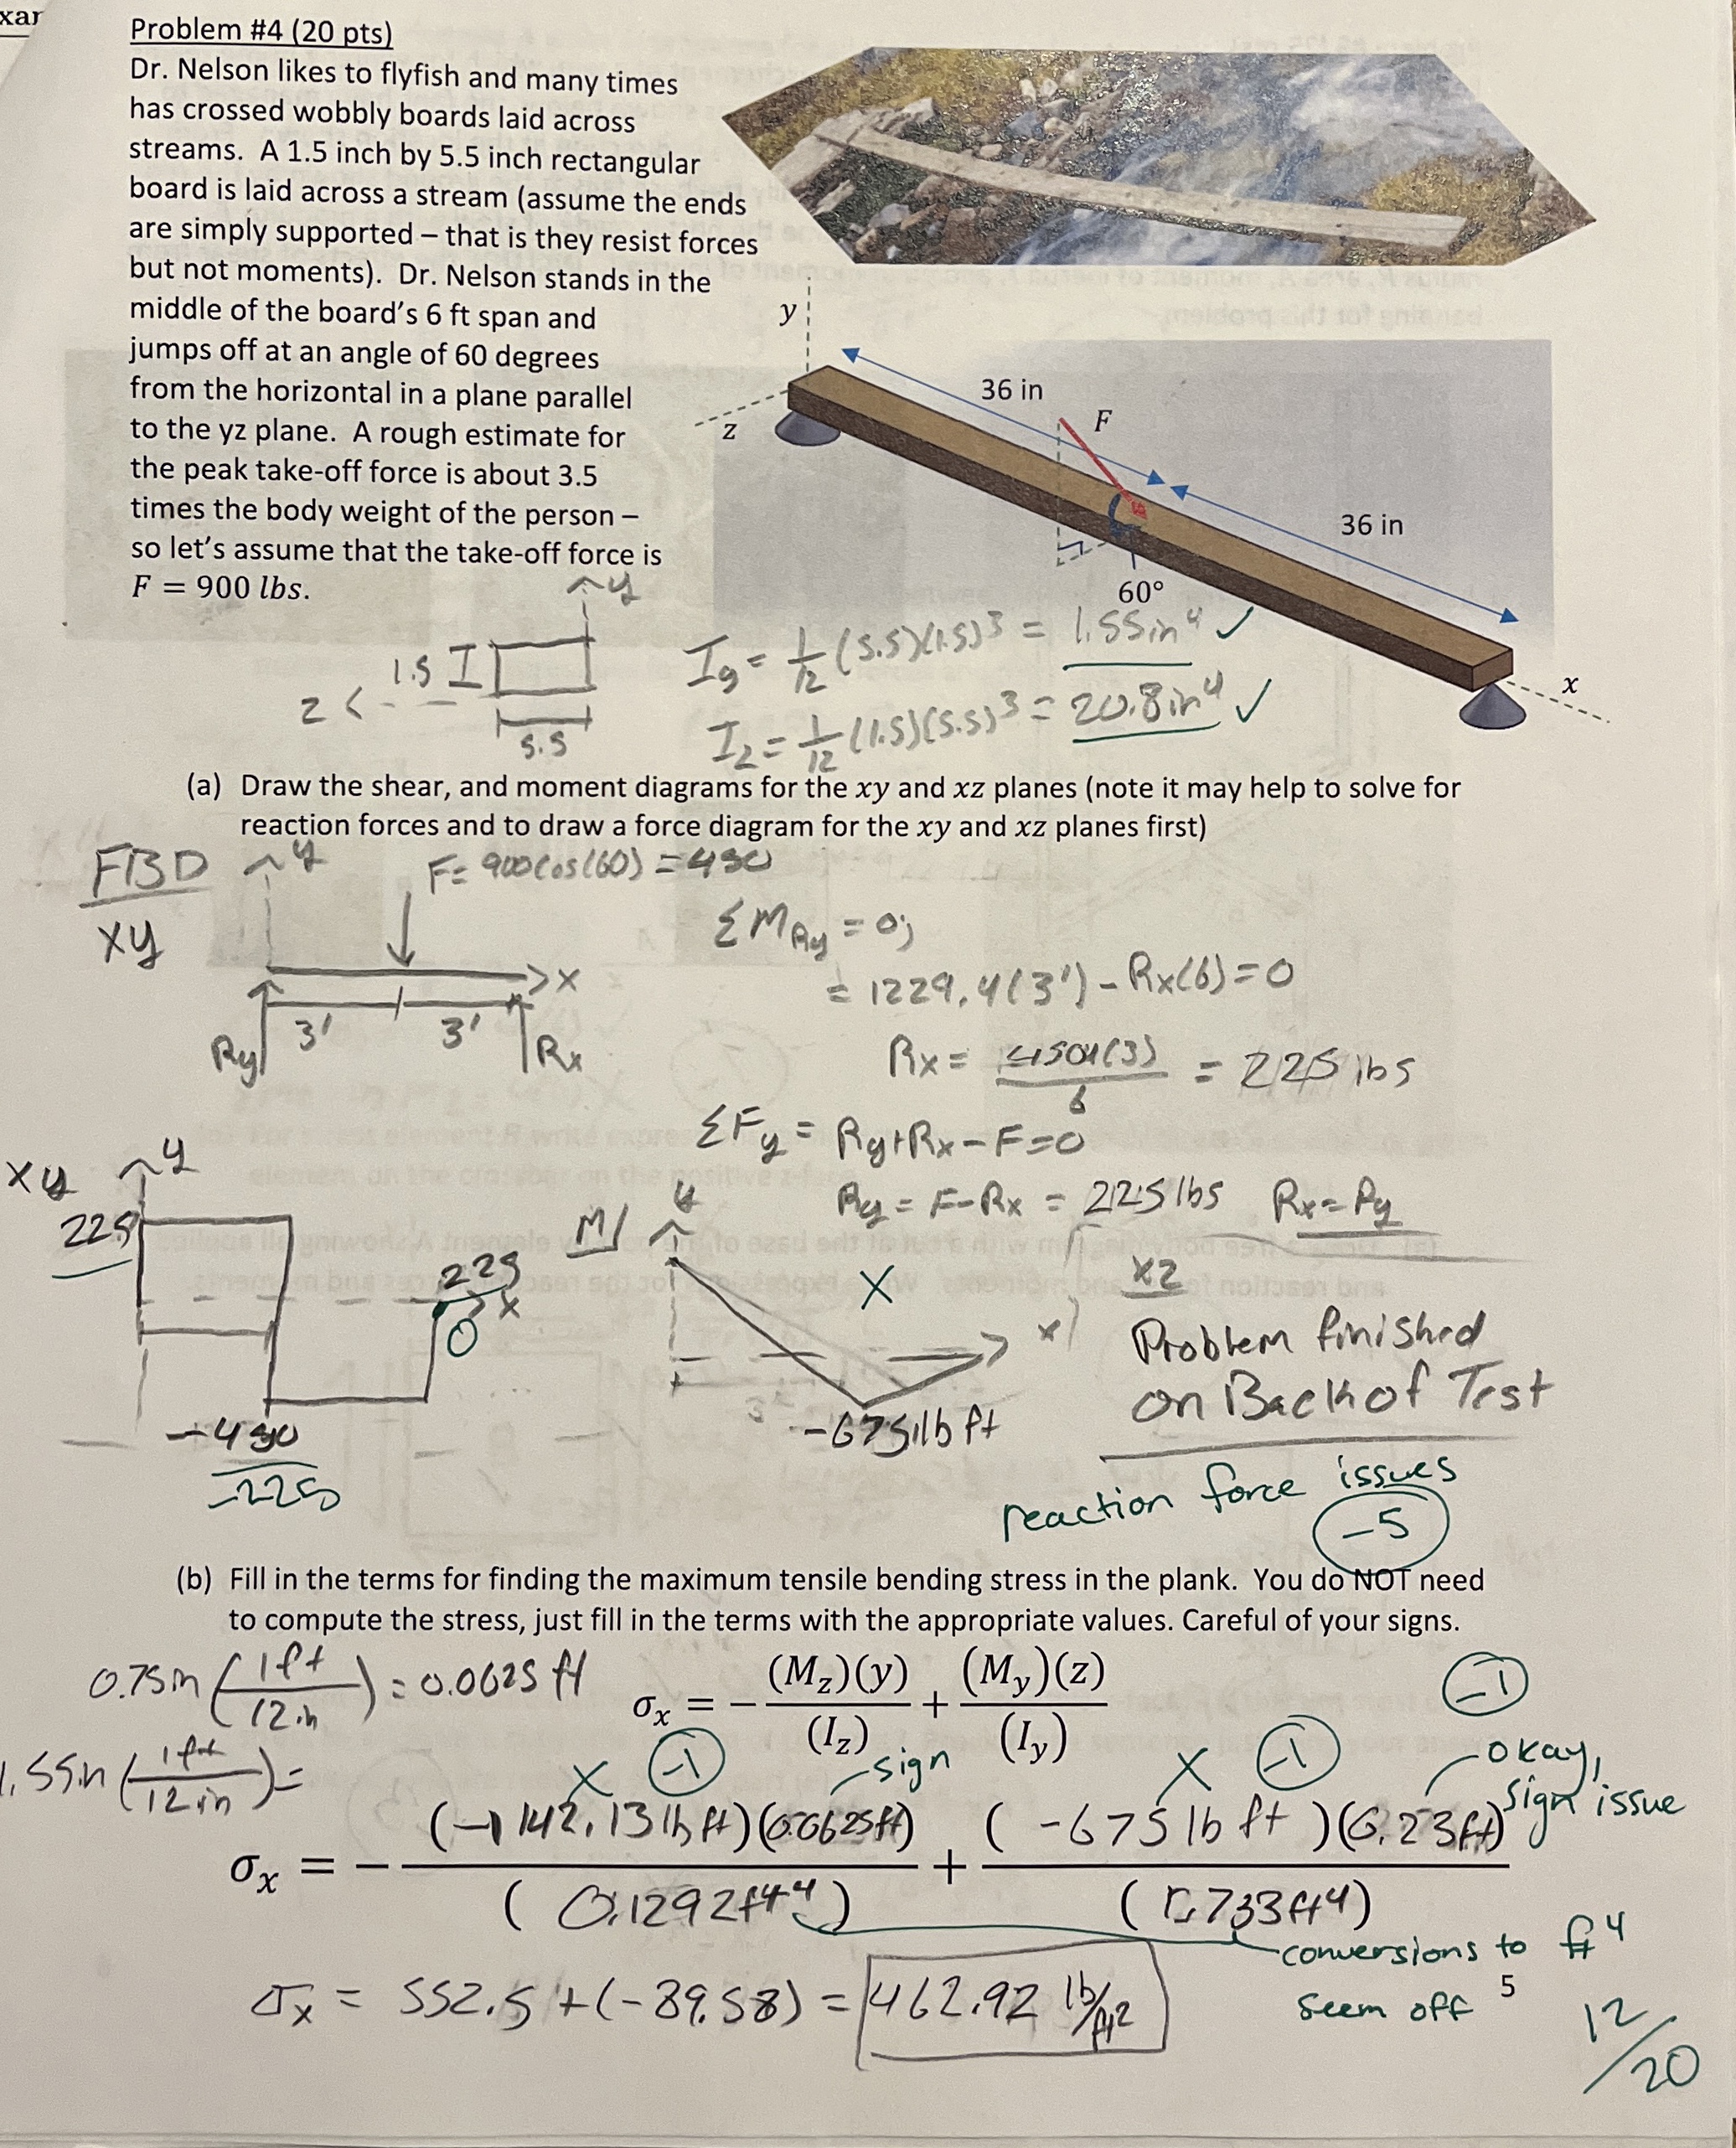 xar
Problem #4 (20 pts)
Dr. Nelson likes to flyfish and many times
has crossed wobbly boards laid across
streams. A 1.5 inch by 5.5 inch rectangular
board is laid across a stream (assume the ends
are simply supported – that is they resist forces
but not moments). Dr. Nelson stands in the
middle of the board's 6 ft span and
jumps off at an angle of 60 degrees
from the horizontal in a plane parallel
to the yz plane. A rough estimate for
the peak take-off force is about 3.5
times the body weight of the person –
so let's assume that the take-off force is
F = 900 lbs.
y
z
36 in
F
36 in
60°
x
y
1.5
z
5.5
I_y = 1/12 (5.5)(1.5)³ = 1.55in⁴ ✓
I_z = 1/12 (1.5)(5.5)³ = 20.8in⁴ ✓
(a) Draw the shear, and moment diagrams for the xy and xz planes (note it may help to solve for
reaction forces and to draw a force diagram for the xy and xz planes first)
FBD
xy
y
F= 900cos(60) = 450
x
3' 3'
Ry Rx
ΣM_Ry = 0;
= 1229.4(3') - Rx(6) = 0
Rx = (3)/6 = 225 lbs
ΣFy = Ry+Rx-F=0
Ry = F-Rx = 225 lbs Rx=Ry
xy
y
225
225
x
0
-450
-225
M/
y
X
x
-675 lb ft
xz
Problem finished
on Back of Test
reaction force issues
-5
(b) Fill in the terms for finding the maximum tensile bending stress in the plank. You do NOT need
to compute the stress, just fill in the terms with the appropriate values. Careful of your signs.
0.75in (1ft/12in) = 0.0625 ft
σx = - (Mz)(y)/(Iz) + (My)(z)/(Iy)
-1
1.55in (1ft/12in) =
X -1 sign
X -1 okay,
sign issue
σx = - (-1142.13 lb ft)(0.0625ft)/(0.1292ft⁴) + (-675 lb ft)(0.23ft)/(1.733ft⁴)
conversions to ft⁴
seem off
σx = 552.5 + (-89.58) = 462.92 lb/ft²
5
12/20